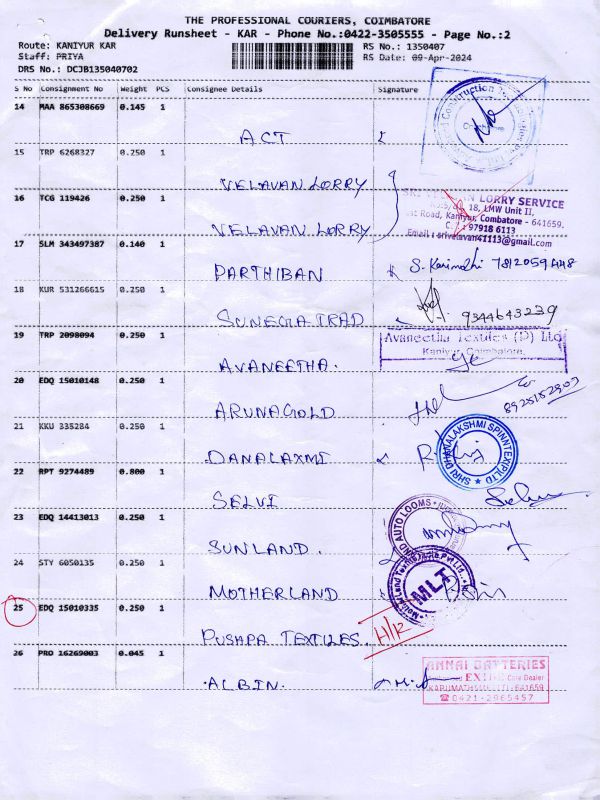 THE PROFESSIONAL COURIERS, COIMBATORE
Delivery Runsheet - KAR - Phone No.:0422-3505555 - Page No.:2
Route: KANIYUR KAR
RS No.: 1350407
Staff: PRIYA
RS Date: 09-Apr-2024
DRS No.: DCJB135040702
S No Consignment No Weight PCS Consignee Details Signature
14 MAA 865308669 0.145 1
ACT
15 TRP 6268327 0.250 1
VELAVAN LORRY
16 TCG 119426 0.250 1
LORRY SERVICE
18, LMW Unit II,
Road, Kaniyur, Combatore - 641659.
97918 6113
Email : srivelavan41113@gmail.com
VELAVAN LORRY
17 SLM 343497387 0.140 1
PARTHIBAN
S. Karimathi 7812059448
18 KUR 531266615 0.250 1
SUNEGA TRAD
9344643239
19 TRP 2098094 0.250 1
Avaneetha Textiles (P) Ltd
Kaniyur, Coimbatore.
AVANEETHA.
20 EDQ 15010148 0.250 1
ARUNAGOLD
21 KKU 335284 0.250 1
DANALAXMI
SHRI DHANALAKSHMI SPINNTEX(P)LTD
22 RPT 9274489 0.800 1
SELVI
23 EDQ 14413013 0.250 1
AUTO LOOMS
SUNLAND.
24 STY 6050135 0.250 1
MOTHERLAND
MLT
25 EDQ 15010335 0.250 1
PUSHPA TEXTILES.
H/R
26 PRO 16269003 0.045 1
ANNAI BATTERIES
EXIDE Care Dealer
641659
0421-2965457
ALBIN.